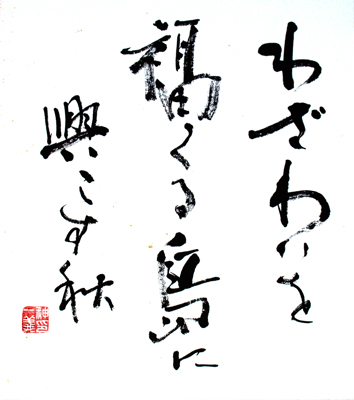 わざわいを
福くる島に
興こす秋